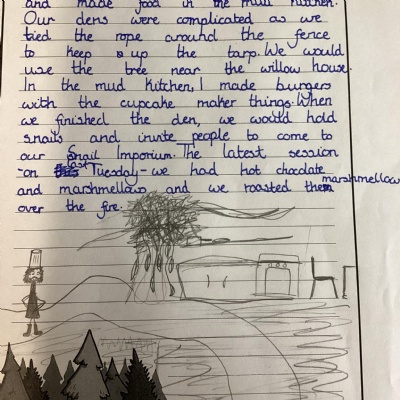 and made food in the mud kitchen.
Our dens were complicated as we
tied the rope around the fence
to keep up the tarp. We would
use the tree near the willow house.
In the mud kitchen, I made burgers
with the cupcake maker things. When
we finished the den, we would hold
snails and invite people to come to
our Snail Imporium. The latest session
-on last Tuesday- we had hot chocolate
and marshmellows and we roasted the marshmellow
over the fire.